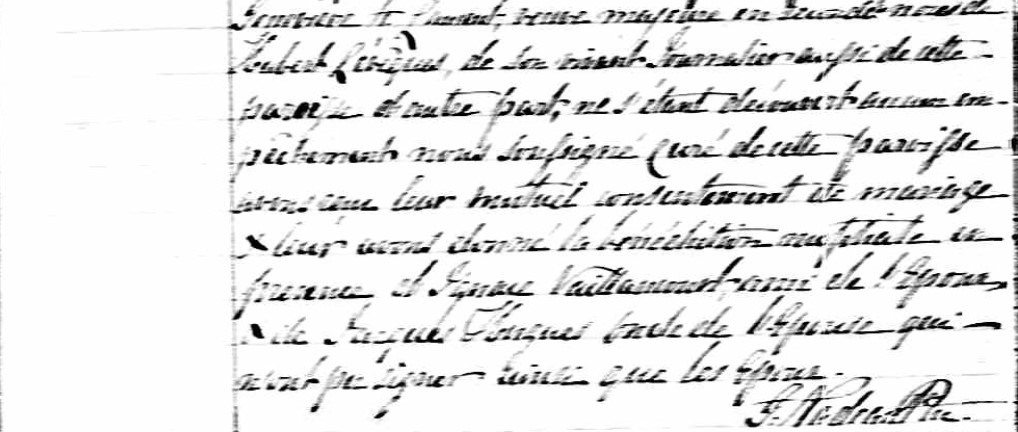 veuve majeure en secondes noces de
Hubert Lévêques, de son vivant Journalier aussi de cette
paroisse d'autre part, ne s'étant découvert aucun em-
pêchement nous soussigné Curé de cette paroisse
avons reçu leur mutuel consentement de mariage
& leur avons donné la bénédiction nuptiale en
presence d'Ignace Vaillancourt, ami de l'Epoux,
& de Jacques Hugues de l'Epouse qui
n'ont pu signer ainsi que les Epoux.